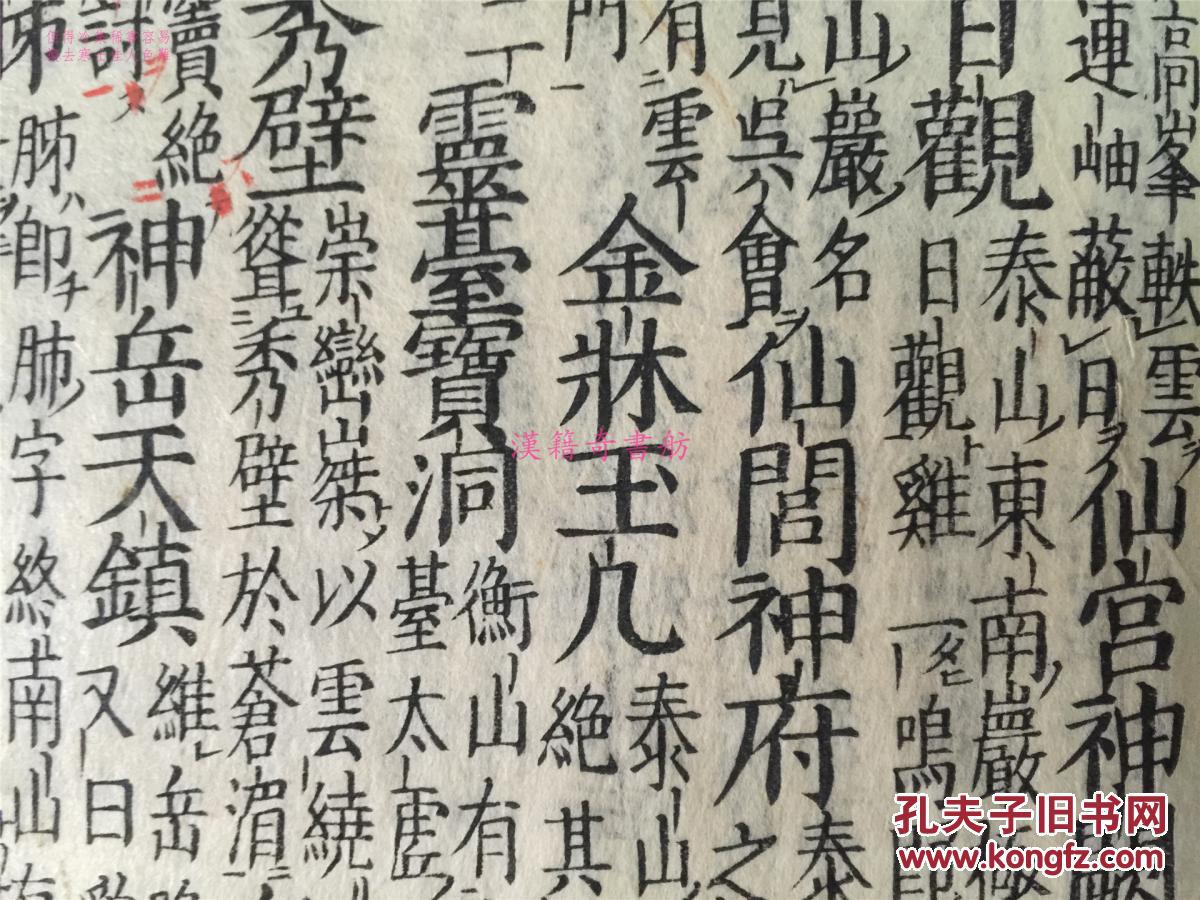 高峯軼雲
連岫蔽日
仙宮神
日觀
泰山東南巖
日觀雞一鳴
山巖名
見吳會
仙閭神府
泰
之
有雲
門
金牀玉几
泰山
絶其
靈臺寶洞
衡山有
臺太虛
秀壁
崇巒嵥以雲繞
聳秀壁於蒼湄
絶
討
神岳天鎮
維岳
又曰
肺即肺字終南山有
但得
漢籍奇書舫
孔夫子旧书网
www.kongfz.com